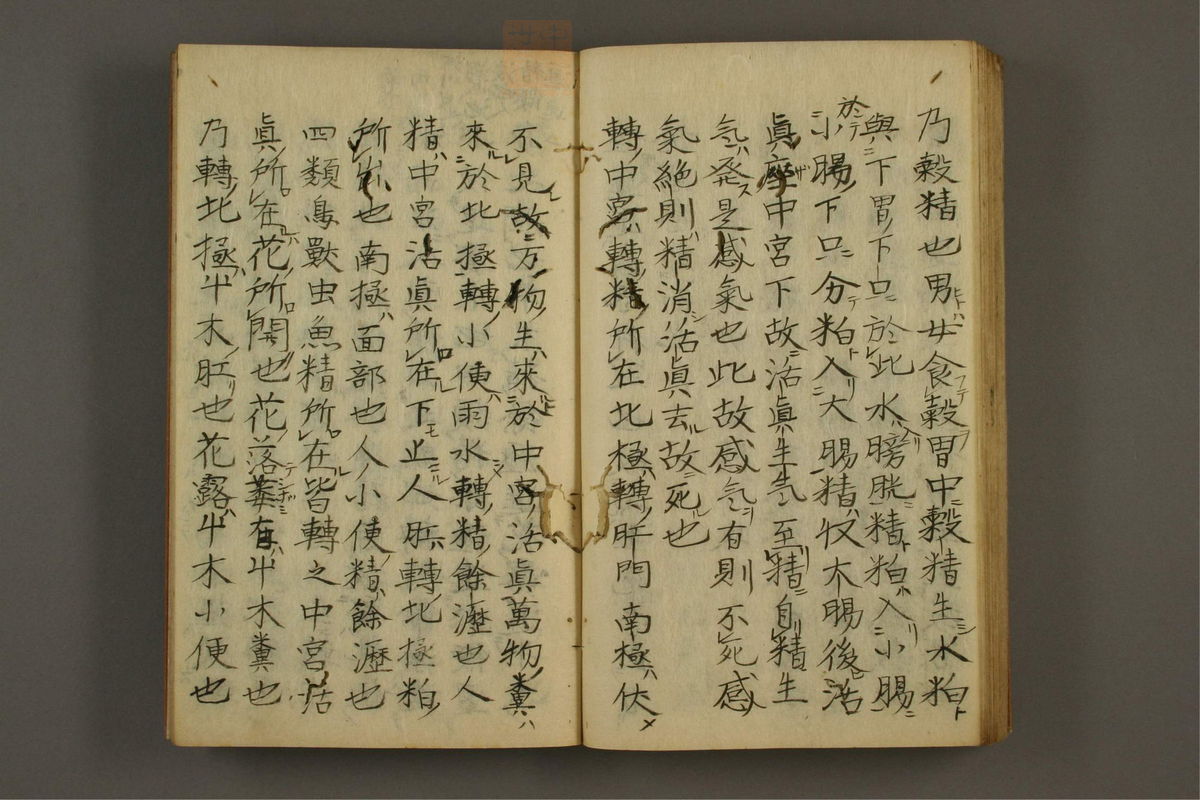 乃穀精也男女食穀胃中穀精生水粕
與下胃下口於此水膀胱精粕入小腸
於小腸下口分粕入大腸精牧木腸後活
眞座中宮下故活眞生気至精自精生
気発是感氣也此故感気有則不死感
氣絶則精消活眞去故死也
轉中宮轉精所在北極轉肝門南極伏
不見故万物生來於中宮活眞萬物糞
來於北極轉小便雨水轉精餘瀝也人
精中宮活眞所在下止人肛轉北極粕
所出也南極面部也人小便精餘瀝也
四類鳥獣虫魚精所在皆轉之中宮活
眞所在花所開也花落蔕在艸木糞也
乃轉北極艸木肛也花露艸木小便也